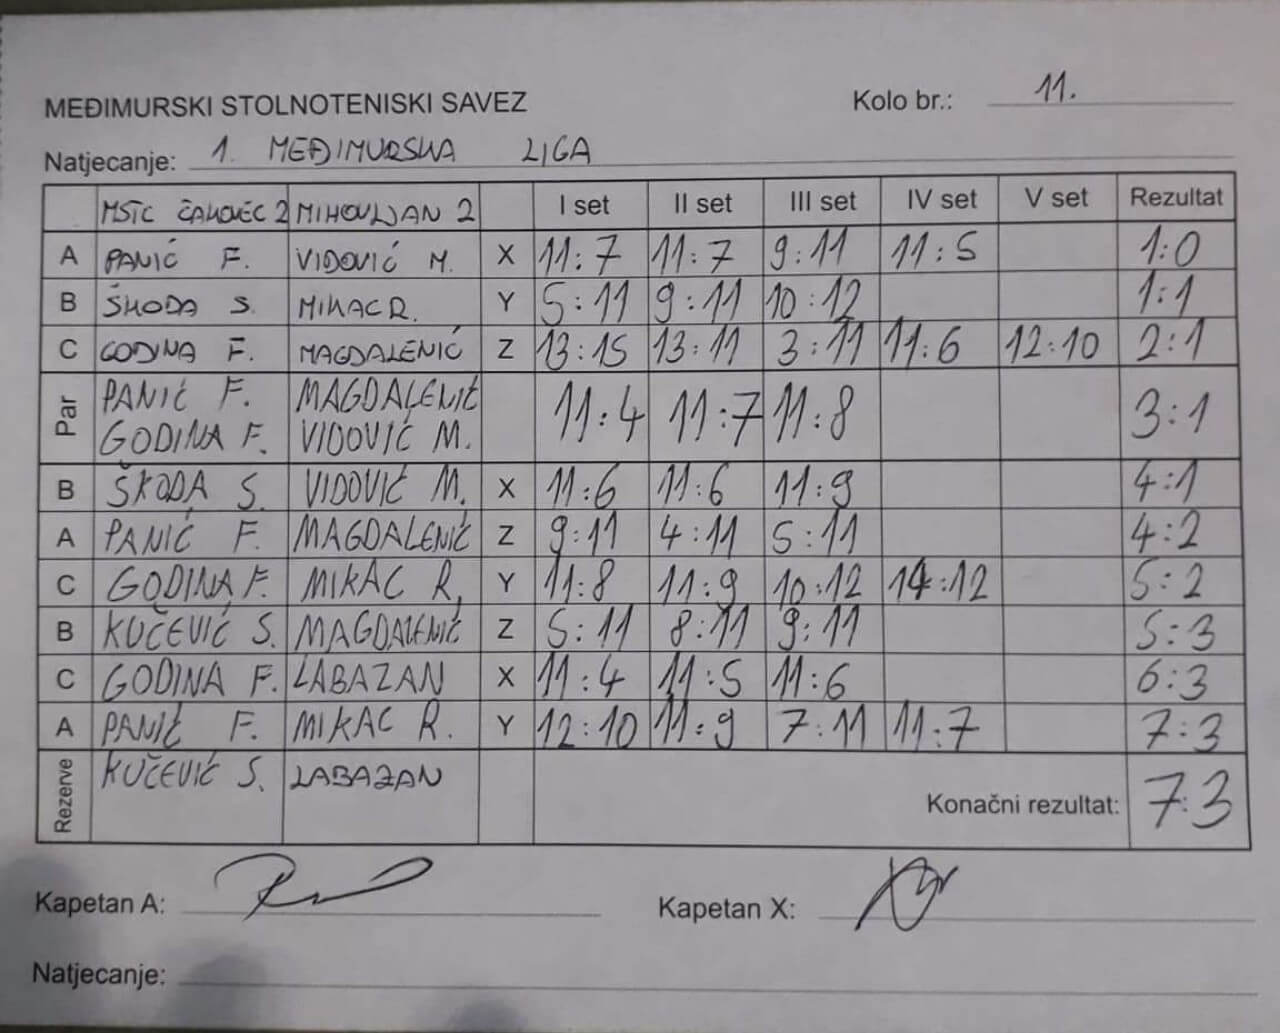 MEĐIMURSKI STOLNOTENISKI SAVEZ Kolo br.: 11.
Natjecanje: 1. MEĐIMURSKA LIGA
MSTC ČAKOVEC 2 MIHOVLJAN 2 I set II set III set IV set V set Rezultat
A PANIĆ F. VIDOVIĆ M. X 11:7 11:7 9:11 11:5 1:0
B ŠKODA S. MIKAC R. Y 5:11 9:11 10:12 1:1
C GODINA F. MAGDALENIĆ Z 13:15 13:11 3:11 11:6 12:10 2:1
Par PANIĆ F. MAGDALENIĆ 11:4 11:7 11:8 3:1
GODINA F. VIDOVIĆ M.
B ŠKODA S. VIDOVIĆ M. X 11:6 11:6 11:9 4:1
A PANIĆ F. MAGDALENIĆ Z 9:11 4:11 5:11 4:2
C GODINA F. MIKAC R. Y 11:8 11:9 10:12 14:12 5:2
B KUČEVIĆ S. MAGDALENIĆ Z 5:11 8:11 9:11 5:3
C GODINA F. LABAZAN X 11:4 11:5 11:6 6:3
A PANIĆ F. MIKAC R. Y 12:10 11:9 7:11 11:7 7:3
Rezerve KUČEVIĆ S. LABAZAN Konačni rezultat: 7:3
Kapetan A: Kapetan X:
Natjecanje: